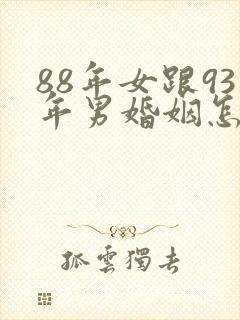 88年女跟93
年男婚姻怎
孤雲獨去